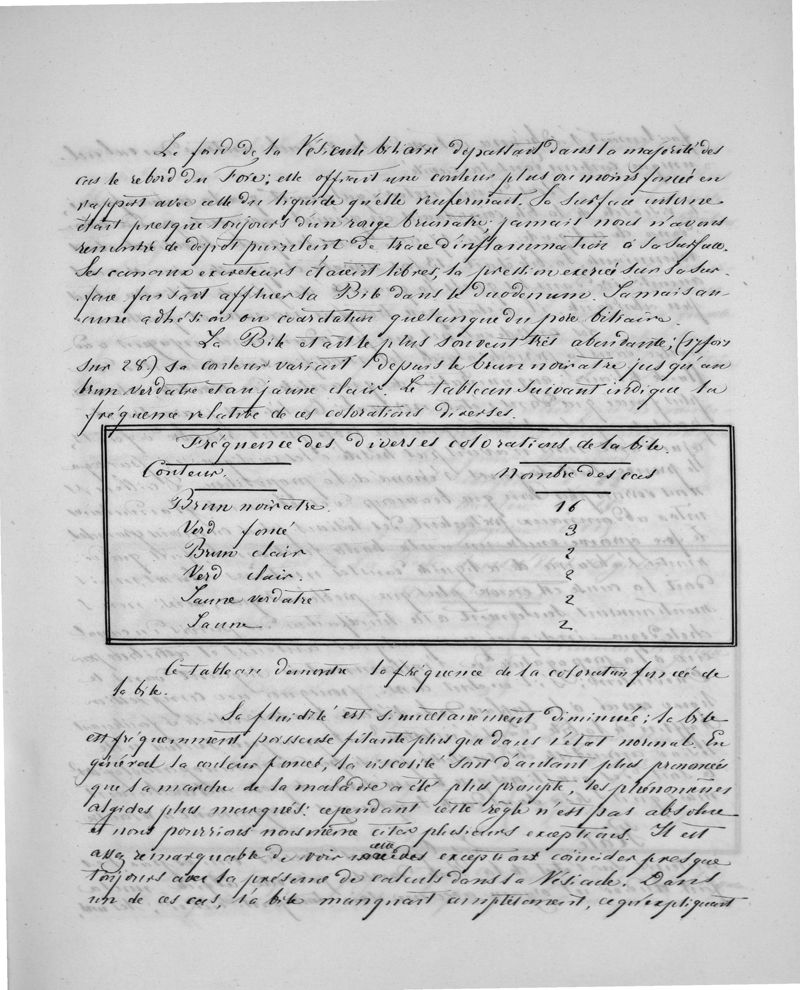 Le fond de la Vésicule biliaire dépassait dans la majorité des
cas le rebord du Foie; elle offrait une couleur plus ou moins foncée en
rapport avec celle du liquide qu'elle renfermait. Sa surface interne
était presque toujours d'un rouge brunatre; jamais nous n'avons
rencontré de dépôt purulent de trace d'inflammation à sa surface.
Ses canaux excréteurs étaient libres, la pression exercée sur sa sur-
-face faisait affluer la Bile dans le duodenum. Jamais au-
-cune adhésion ou coarctation quelconque du pore biliaire.
La Bile était le plus souvent très abondante; (17 fois
sur 28.) sa couleur variait depuis le brun noiratre jusqu'au
brun verdatre et au jaune clair. Le tableau suivant indique la
fréquence relative de ces colorations diverses.
Fréquence des diverses colorations de la bile.
Couleur. Nombre des cas
Brun noiratre. 16
Verd foncé 3
Brun clair 2
Verd clair. 2
Jaune verdatre 2
Jaune 2
Ce tableau démontre la fréquence de la coloration foncée de
la bile.
Sa fluidité est simultanément diminuée; la bile
est fréquemment poisseuse filante plus que dans l'état normal. En
général la couleur foncée, la viscosité sont d'autant plus prononcés
que la marche de la maladie a été plus prompte, les phénomènes
algides plus marqués: cependant cette règle n'est pas absolue
et nous pourrions nous même citer plusieurs exceptions. Il est
assez remarquable de voir des exceptions coïncider presque
toujours avec la présence de calculs dans la Vésicule. Dans
un de ces cas, la bile manquait complètement, ce qu'expliquait